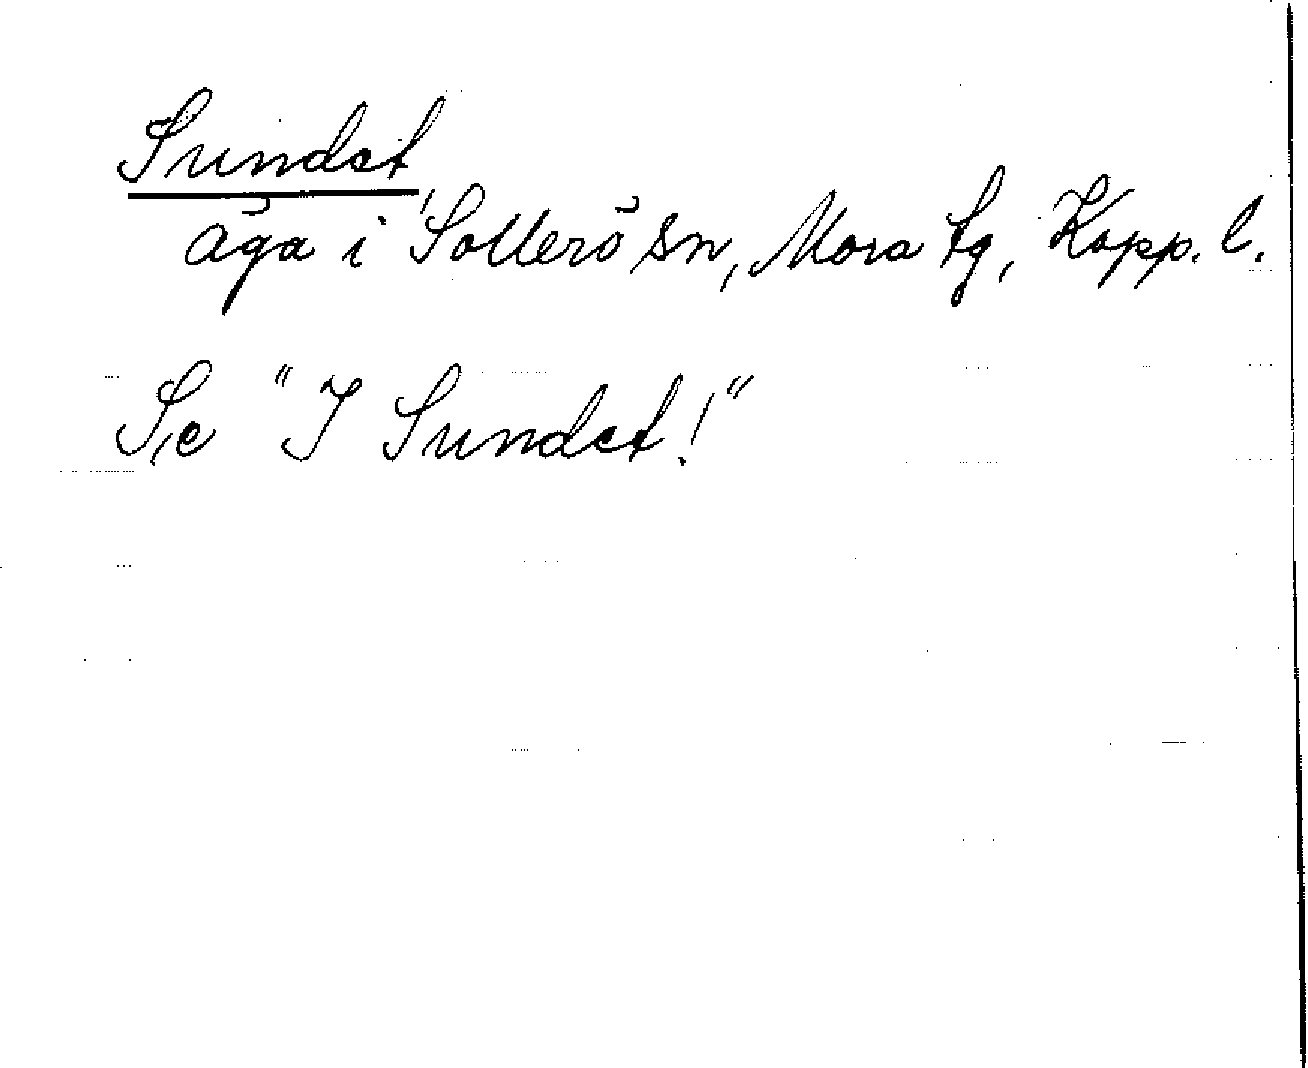 Sundet
äga i Sollerö sn, Mora tg, Kopp. l.
Se "I Sundet!"